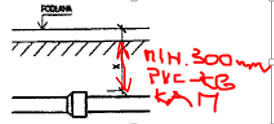 PODLAHA
X
MIN. 300mm
PVC-KG
KAM